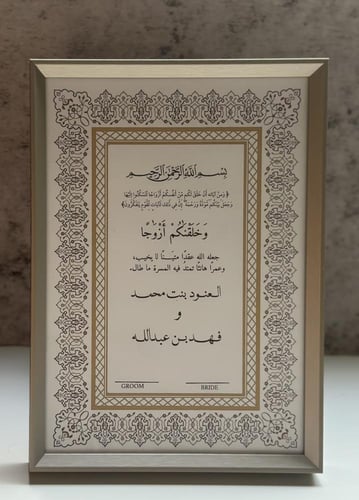 بسم الله الرحمن الرحيم
﴿ ومن آياته أن خلق لكم من أنفسكم أزواجا لتسكنوا إليها
وجعل بينكم مودة ورحمة إن في ذلك لآيات لقوم يتفكرون ﴾
وَخَلَقْنَاكُمْ أَزْوَاجًا
جعله الله عقدًا متينًا لا يخيب،
وعمرًا هانئًا تمتد فيه المسرة ما طال.
العنود بنت محمد
و
فهد بن عبدالله
GROOM BRIDE